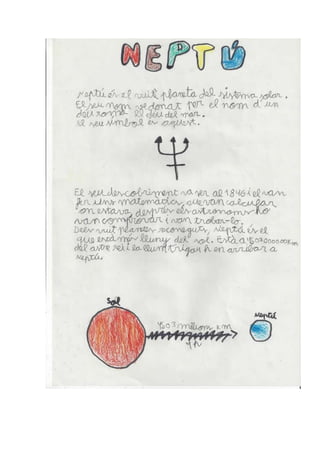 NEPTÚ
neptú és el vuit planeta del sistema solar.
El seu nom ve donat per el nom d'un
deu romà el deu del mar.
El seu simbol és aquest.
El seu descobriment va ser al 1846 i el van
fer uns matematics, que van calcular
on estava, després els astronoms ho
van comprovar i van trobar-lo.
Dels vuit planetes coneguts, neptú és el
que està més lluny del sol. Està a
del astre rei i la llum triga 4 h en arribar a
neptú.
Sol
neptú
milions km
4 h